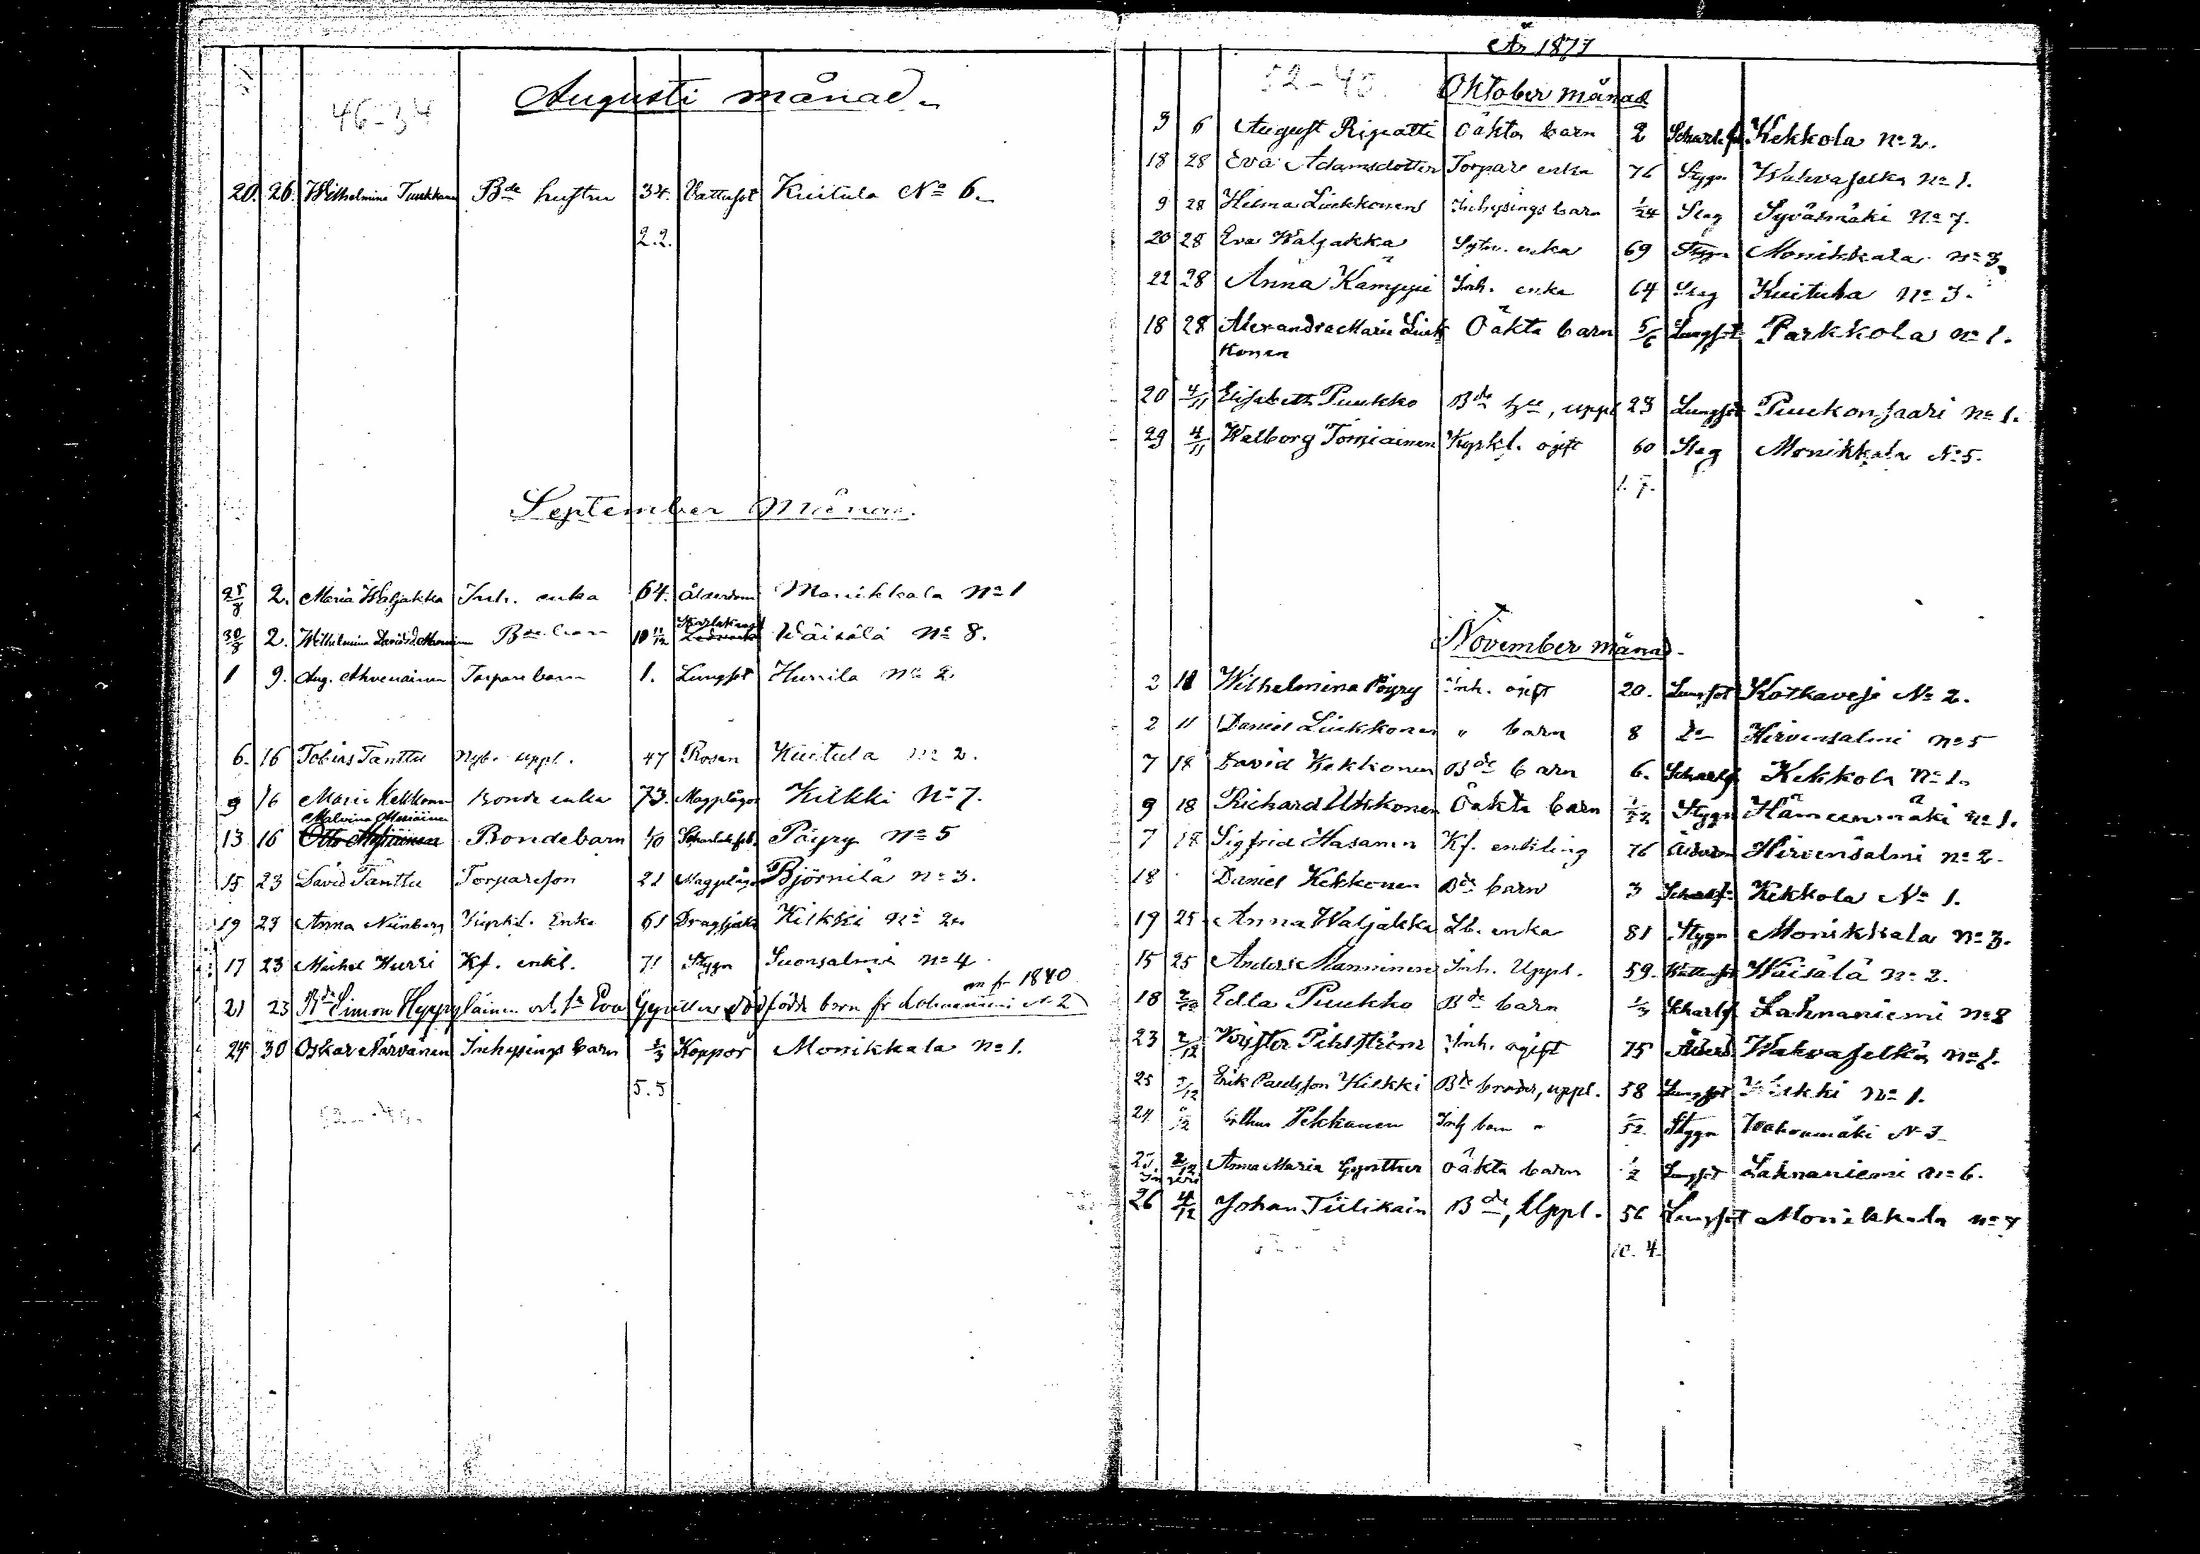 46-34
Augusti månad.
20. 26. Wilhelmina Tuukkanen Bde hustru 34. Vattusot Kuitula No 6.
2.2.
September Månad.
25/8 2. Maria Waljakka Inh. enka 64. Ålderdom Monikkala No 1
30/8 2. Wilhelmina Davidsd. Bde barn 10 11/12 Skarlakansf Wäisälä No 8.
1 9. Aug. Ahvenainen Torpare barn 1. Lungsot Hurrila No 2.
6. 16 Tobias Tanttu Nyb. uppl. 47 Rosen Kuitula No 2.
9 16 Maria Kekkonen Bonde enka 73. Magplågor Kilkki No 7.
Malvina Meriäinen
13 16 Otto Bondebarn 1/10 Scharlakfeb. Pöyry No 5
15 23 David Tanttu Torpareson 21 Magplågor Björnilä No 3.
19 23 Anna Nünberg Kyrkil. Enka 61 Dragsjuka Kilkki No 2.
17 23 Michel Hurri Kf. enkl. 71 Stygn Suonsalmi No 4
an fr 1840
21 23 Bde Simon Hyppyläinen o. h. Ha Eva dödfödde barn fr Lahnaniemi No 2
24 30 Oskar Närvänen Inhysings barn 2/3 Koppor Monikkala No 1.
5.5
År 1877
52-40.
Oktober månad
3 6 August Ripatti Oäkta barn 2 Scharlaf Kekkola No 2.
18 28 Eva Adamsdotter Torpare enka 76 Stygn Wahvaselkä No 1.
9 28 Hilma Liukkonens Inhysings barn 1/24 Slag Syväsmäki No 7.
20 28 Eva Waljakka Sytn. enka 69 Stygn Monikkala No 3.
22 28 Anna Kämppi Inh. enka 64 Slag Kuitula No 3.
18 28 Alexandra Maria Liuk Oäkta barn 5/6 Lungsot Parkkola No 1.
konen
20 4/11 Elisabeth Puukko Bde hu, uppl 23 Lungsot Puukonsaari No 1.
29 4/11 Walborg Torniainen Kyrkl. ogift 60 Slag Monikkala No 5.
1. 7.
November månad.
2 11 Wilhelmina Pöyry Inh. ogift 20. Lungsot Kotkavesi No 2.
2 11 Daniel Liukkonen " barn 8 Do Hirvensalmi No 5
7 18 David Kekkonen Bde barn 6. Scharlf Kekkola No 1.
9 18 Richard Ukkonen Oäkta barn 1/52 Stygn Hämeenmäki No 1.
7 18 Sigfrid Hasanen Kf. enkling 76 Ålderdom Hirvensalmi No 2.
18 Daniel Kekkonen Bde barn 3 Scharlf. Kekkola No 1.
19 25 Anna Waljakka Lb. enka 81 Stygn Monikkala No 3.
15 25 Anders Manninen Inh. Uppl. 59. Vattusot Wäisälä No 2.
18 2/12 Edla Puukko Bde barn 1/3 Scharlf Lahnaniemi No 8
23 2/12 Krister Pihlström Inh. ogift 75 Ålderd Wahvaselkä No 1.
25 2/12 Erik Paulsson Kilkki Bde broder, uppl. 58 Lungsot Kilkki No 1.
24 2/12 Arthur Pekkanen Inh barn " /52 Stygn No 3
25. 2/12 Anna Maria Gynther oäkta barn 1/2 Lungsot Lahnaniemi No 6.
26 4/12 Johan Tiilikain Bde, Uppl. 56 Lungsot Monikkala No 7
10. 4.